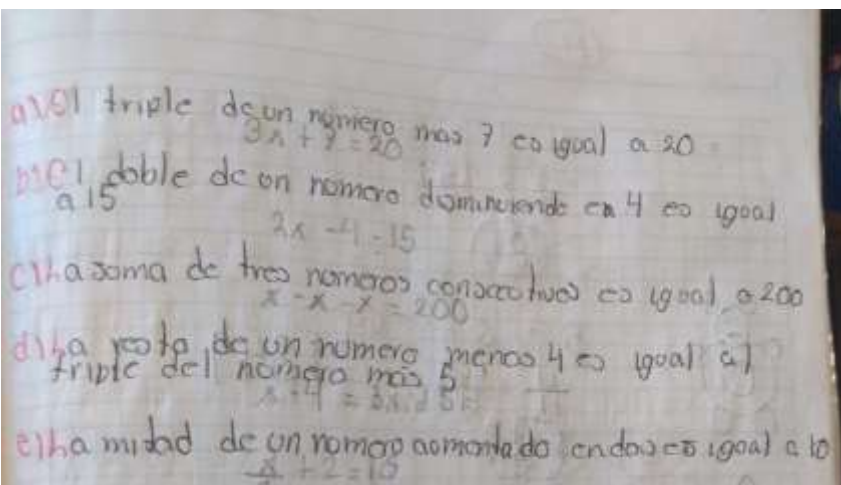 a) El triple de un número mas 7 es igual a 20
3x + 7 = 20
b) El doble de un nomero disminciendo en 4 es igoal
a 15
2x - 4 = 15
c) La soma de tres nomeros consecotivos es igoal a 200
x - x - x = 200
d) La resta de un numero menos 4 es igoal al
triple del nomero mas 5
x - 4 = 3x + 5
e) La mitad de un nomero aomentado en dos es igoal a 10
x + 2 = 10